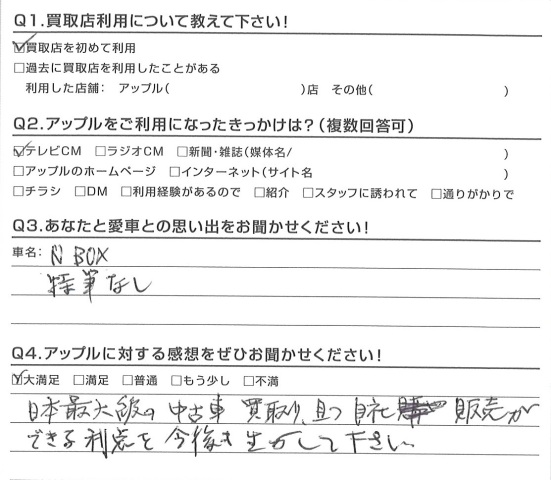 Q1.買取店利用について教えて下さい！
☑買取店を初めて利用
□過去に買取店を利用したことがある
利用した店舗： アップル（ ）店 その他（ ）
Q2.アップルをご利用になったきっかけは？（複数回答可）
☑テレビCM □ラジオCM □新聞・雑誌（媒体名/ ）
□アップルのホームページ □インターネット（サイト名 ）
□チラシ □DM □利用経験があるので □紹介 □スタッフに誘われて □通りがかりで
Q3.あなたと愛車との思い出をお聞かせください！
車名： N BOX
特筆なし
Q4.アップルに対する感想をぜひお聞かせください！
☑大満足 □満足 □普通 □もう少し □不満
日本最大級の中古車 買取り、且つ 自社 販売が
できる利点を今後も生かして下さい